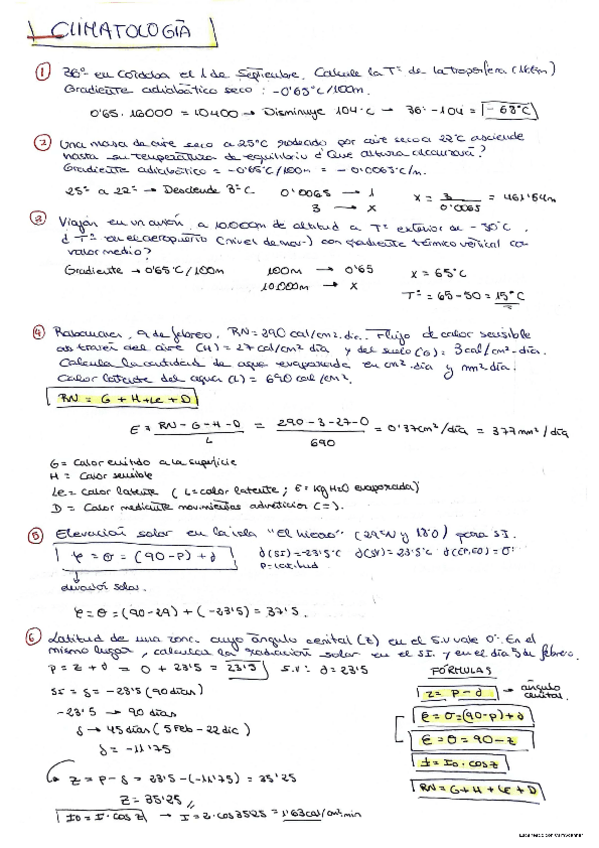 CLIMATOLOGÍA
① 36° en Córdoba el 1 de Septiembre. Calcule la Tª de la troposfera (16km)
Gradiente adiabático seco: -0'65°C/100m.
0'65 · 16000 = 10400 → Disminuye 104°C → 36° - 104 = -68°C
② Una masa de aire seco a 25°C rodeado por aire seco a 22°C asciende
hasta su temperatura de equilibrio ¿Que altura alcanzará?
Gradiente adiabático = -0'65°C/100m = -0'0065°C/m.
25° a 22° → Desciende 3°C 0'0065 → 1 x = 3/0'0065 = 461'54m
3 → x
③ Viajan en un avión a 10.000m de altitud a Tª exterior de -50°C.
¿Tª en el aeropuerto (nivel de mar) con gradiente térmico vertical
valor medio?
Gradiente → 0'65°C/100m 100m → 0'65 x = 65°C
10.000m → x
Tª = 65-50 = 15°C
④ 9 de febrero. RN = 290 cal/cm² día. Flujo de calor sensible
través del aire (H) = 27 cal/cm² día y del suelo (G) = 3 cal/cm² día.
Calcula la cantidad de agua evaporada en cm² día y mm² día.
Calor latente del agua (L) = 690 cal/cm².
RN = G + H + LE + D
E = RN - G - H - D / L = 290 - 3 - 27 - 0 / 690 = 0'37cm²/día = 3'77mm²/día
G = Calor emitido a la superficie
H = Calor sensible
LE = Calor latente (L = calor latente; E = Kg H2O evaporada)
D = Calor mediante movimientos advectivos (=).
⑤ Elevación solar en la isla "El hierro" (29°N y 18°O) para S.I.
φ = σ = (90-P) + d d(SI) = -23'5°C d(SV) = 23'5°C d(EP,EO) = 0°
P = latitud
elevación solar.
φ = σ = (90-29) + (-23'5) = 37'5.
⑥ Latitud de una zona cuyo ángulo cenital (z) en el S.V vale 0°. En el
mismo lugar, calcular la radiación solar en el SI. y en el día 5 de febrero.
P = z + d = 0 + 23'5 = 23'5 S.V: d = 23'5
FÓRMULAS
SI = δ = -23'5 (90 días)
z = P - d → ángulo cenital.
-23'5 → 90 días
φ = σ = (90-P) + d
δ → 45 días (5 Feb - 22 dic)
φ = σ = 90 - z
δ = -11'75
I = I0 · cos z
z = P - δ = 23'5 - (-11'75) = 35'25
RN = G + H + LE + D
z = 35'25
I0 = I · cos z → I = 2 · cos 35'25 = 1'63cal/cm².min